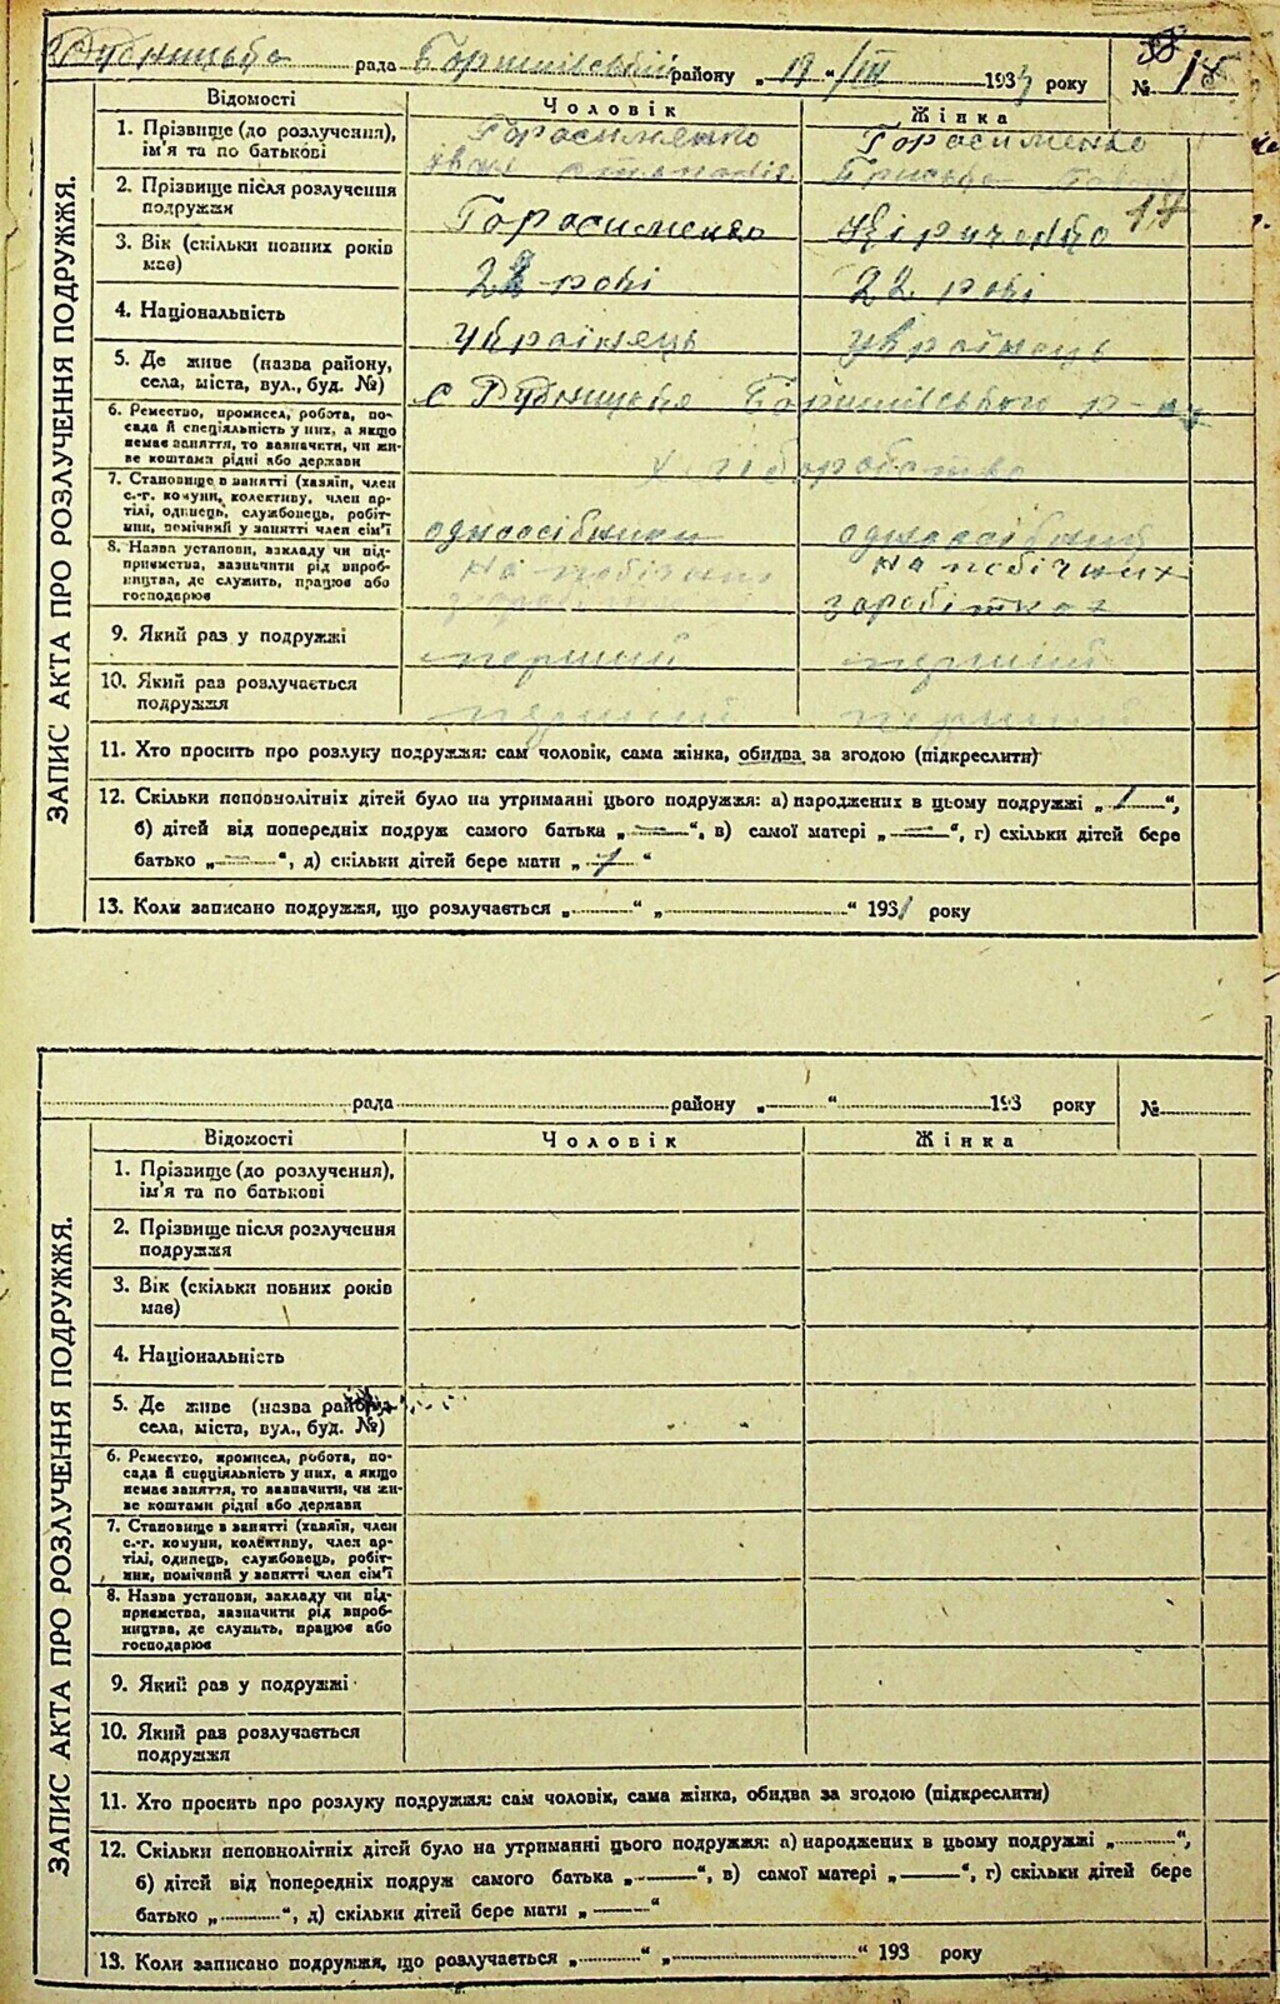 Рудницька рада Баришівський району „ 19 “ /III 1933 року № 15
ЗАПИС АКТА ПРО РОЗЛУЧЕННЯ ПОДРУЖЖЯ.
Відомості Чоловік Жінка
1. Прізвище (до розлучення), ім'я та по батькові Горосименко Іван Горосименко
2. Прізвище після розлучення подружжя Горосименко Кіриченко 17
3. Вік (скільки повних років має) 22 роки 22 роки
4. Національність українець українець
5. Де живе (назва району, села, міста, вул., буд. №) с Рудницьке Баришівського р-ну
6. Ремество, промисел, робота, посада й спеціяльність у них, а якщо немає заняття, то зазначити, чи живе коштами рідні або держави хліборобство
7. Становище в занятті (хазяїн, член с.-г. комуни, колективу, член артілі, одинець, службовець, робітник, помічний у занятті член сім'ї одноосібник одноосібниц
8. Назва установи, закладу чи підприємства, зазначити рід виробництва, де служить, працює або господарює на побічних заробітках на побічних заробітках
9. Який раз у подружжі перший перший
10. Який раз розлучається подружжя перший перший
11. Хто просить про розлуку подружжя: сам чоловік, сама жінка, обидва за згодою (підкреслити)
12. Скільки неповнолітніх дітей було на утриманні цього подружжя: а) народжених в цьому подружжі „ 1 “,
б) дітей від попередніх подруж самого батька „ — “, в) самої матері „ — “, г) скільки дітей бере
батько „ — “, д) скільки дітей бере мати „ 1 “
13. Коли записано подружжя, що розлучається „ “ „ “ 1931 року
рада району „ “ 193 року №
ЗАПИС АКТА ПРО РОЗЛУЧЕННЯ ПОДРУЖЖЯ.
Відомості Чоловік Жінка
1. Прізвище (до розлучення),
ім'я та по батькові
2. Прізвище після розлучення
подружжя
3. Вік (скільки повних років
має)
4. Національність
5. Де живе (назва району,
села, міста, вул., буд. №)
6. Ремество, промисел, робота, по-
сада й спеціяльність у них, а якщо
немає заняття, то зазначити, чи жи-
ве коштами рідні або держави
7. Становище в занятті (хазяїн, член
с.-г. комуни, колективу, член ар-
тілі, одинець, службовець, робіт-
ник, помічний у занятті член сім'ї
8. Назва установи, закладу чи під-
приємства, зазначити рід вироб-
ництва, де служить, працює або
господарює
9. Який раз у подружжі
10. Який раз розлучається
подружжя
11. Хто просить про розлуку подружжя: сам чоловік, сама жінка, обидва за згодою (підкреслити)
12. Скільки неповнолітніх дітей було на утриманні цього подружжя: а) народжених в цьому подружжі „ “,
б) дітей від попередніх подруж самого батька „ “, в) самої матері „ “, г) скільки дітей бере
батько „ “, д) скільки дітей бере мати „ “
13. Коли записано подружжя, що розлучається „ “ „ “ 193 року